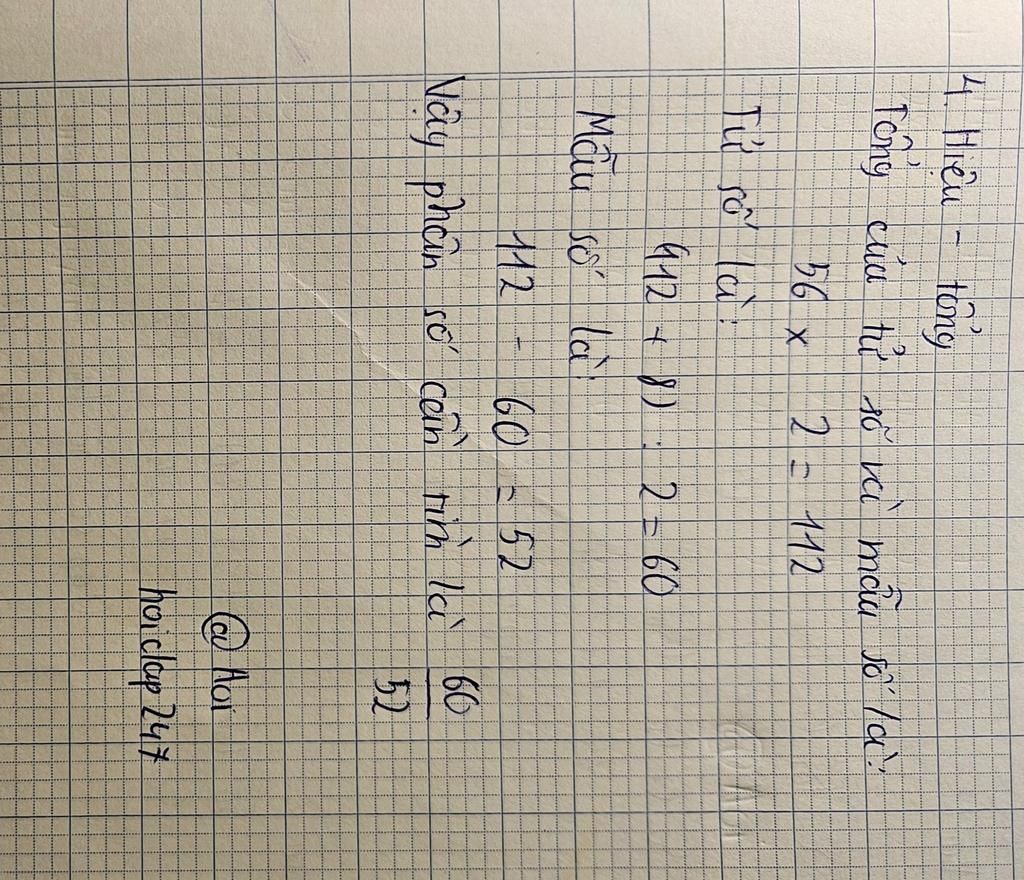 4. Hiệu - tổng
Tổng của tử số và mẫu số là:
56 x 2 = 112
Tử số là:
112 + 8) : 2 = 60
Mẫu số là:
112 - 60 = 52
Vậy phân số cần tìm là 60
52
@ Aoi
hoidap247